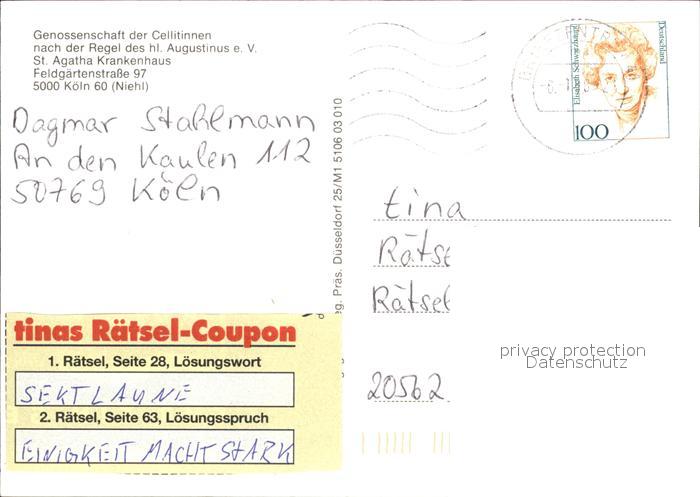 Genossenschaft der Cellitinnen
nach der Regel des hl. Augustinus e. V.
St. Agatha Krankenhaus
Feldgärtenstraße 97
5000 Köln 60 (Niehl)
Dagmar Stahlmann
An den Kaulen 112
50769 Köln
eg. Präs. Düsseldorf 25/M1 5106 03 010
Elisabeth Schwarzhaupt
Deutschland
100
tina
Räts
Rätsel
20562
privacy protection
Datenschutz
tinas Rätsel-Coupon
1. Rätsel, Seite 28, Lösungswort
SEKTLAUNE
2. Rätsel, Seite 63, Lösungsspruch
EINIGKEIT MACHT STARK